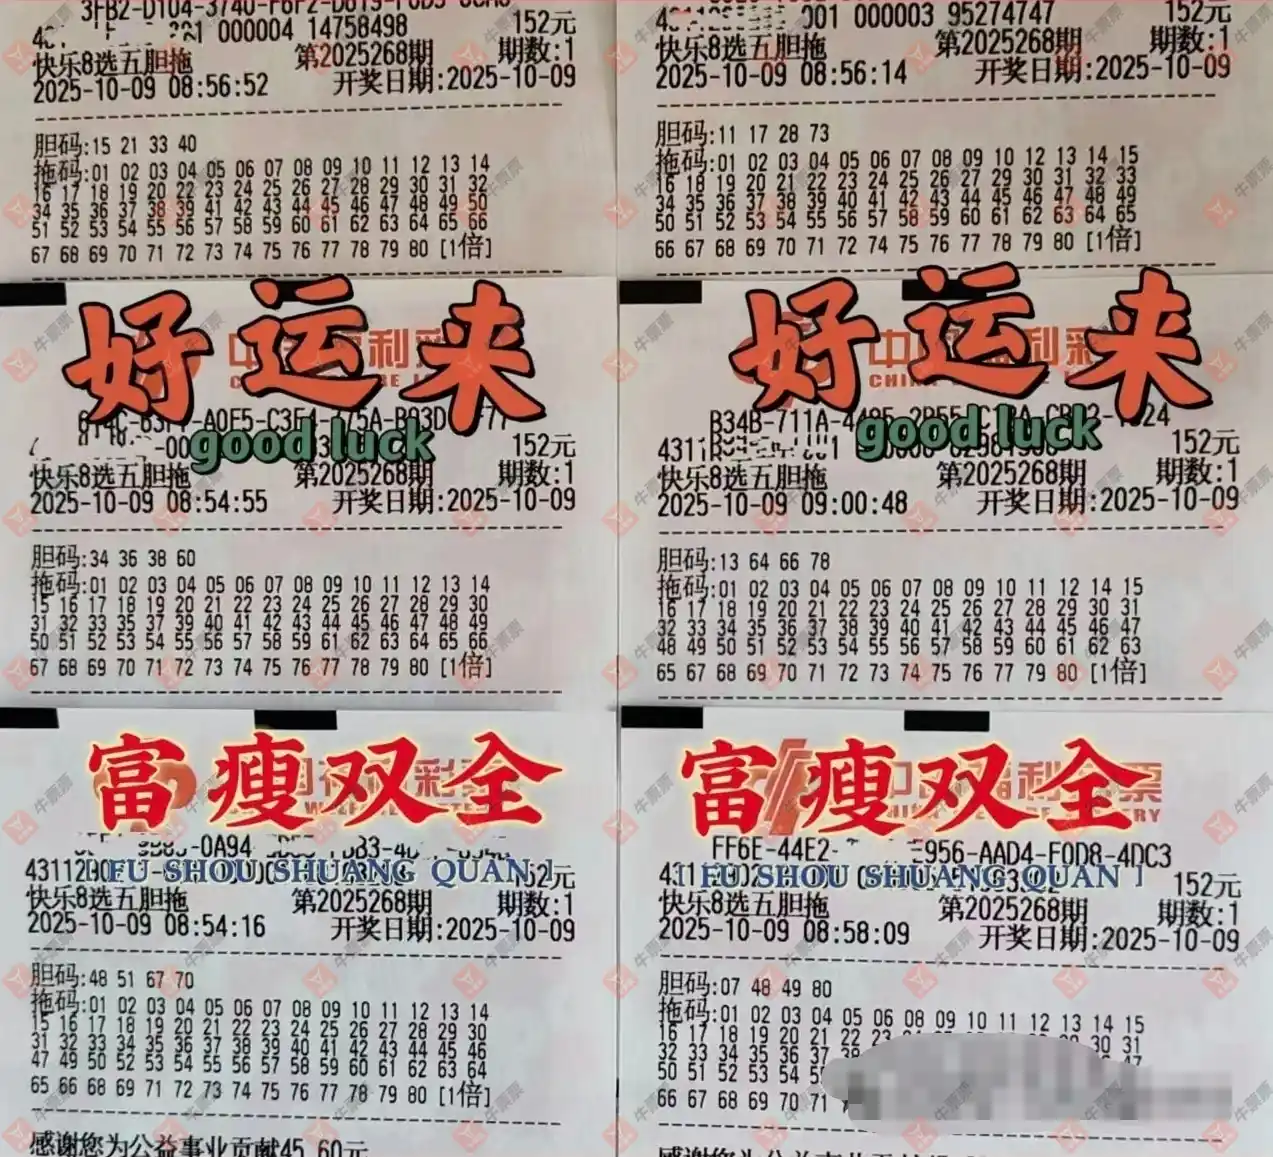 000004 14758498
152元
快乐8选五胆拖
第2025268期
期数:1
2025-10-09 08:56:52
开奖日期:2025-10-09
胆码:15 21 33 40
拖码:01 02 03 04 05 06 07 08 09 10 11 12 13 14
16 17 18 19 20 22 23 24 25 26 27 28 29 30 31 32
34 35 36 37 38 39 41 42 43 44 45 46 47 48 49 50
51 52 53 54 55 56 57 58 59 60 61 62 63 64 65 66
67 68 69 70 71 72 73 74 75 76 77 78 79 80 [1倍]
001 000003 95274747
152元
快乐8选五胆拖
第2025268期
期数:1
2025-10-09 08:56:14
开奖日期:2025-10-09
胆码:11 17 28 73
拖码:01 02 03 04 05 06 07 08 09 10 12 13 14 15
16 18 19 20 21 22 23 24 25 26 27 29 30 31 32 33
34 35 36 37 38 39 40 41 42 43 44 45 46 47 48 49
50 51 52 53 54 55 56 57 58 59 60 61 62 63 64 65
66 67 68 69 70 71 72 74 75 76 77 78 79 80 [1倍]
好运来
good luck
152元
快乐8选五胆拖
第2025268期
期数:1
2025-10-09 08:54:55
开奖日期:2025-10-09
胆码:34 36 38 60
拖码:01 02 03 04 05 06 07 08 09 10 11 12 13 14
15 16 17 18 19 20 21 22 23 24 25 26 27 28 29 30
31 32 33 35 37 39 40 41 42 43 44 45 46 47 48 49
50 51 52 53 54 55 56 57 58 59 61 62 63 64 65 66
67 68 69 70 71 72 73 74 75 76 77 78 79 80 [1倍]
好运来
good luck
B34B-711A
152元
快乐8选五胆拖
第2025268期
期数:1
2025-10-09 09:00:48
开奖日期:2025-10-09
胆码:13 64 66 78
拖码:01 02 03 04 05 06 07 08 09 10 11 12 14 15
16 17 18 19 20 21 22 23 24 25 26 27 28 29 30 31
32 33 34 35 36 37 38 39 40 41 42 43 44 45 46 47
48 49 50 51 52 53 54 55 56 57 58 59 60 61 62 63
65 67 68 69 70 71 72 73 74 75 76 77 79 80 [1倍]
富瘦双全
[FU SHOU SHUANG QUAN]
快乐8选五胆拖
第2025268期
期数:1
2025-10-09 08:54:16
开奖日期:2025-10-09
胆码:48 51 67 70
拖码:01 02 03 04 05 06 07 08 09 10 11 12 13 14
15 16 17 18 19 20 21 22 23 24 25 26 27 28 29 30
31 32 33 34 35 36 37 38 39 40 41 42 43 44 45 46
47 49 50 52 53 54 55 56 57 58 59 60 61 62 63 64
65 66 68 69 71 72 73 74 75 76 77 78 79 80 [1倍]
感谢您为公益事业贡献45.60元
富瘦双全
FF6E-44E2-
E956-AAD4-F0D8-4DC3
[FU SHOU SHUANG QUAN]
152元
快乐8选五胆拖
第2025268期
期数:1
2025-10-09 08:58:09
开奖日期:2025-10-09
胆码:07 48 49 80
拖码:01 02 03 04 05 06 08 09 10 11 12 13 14 15
16 17 18 19 20 21 22 23
30 31
32 33 34 35 36 37 38
47
50 51 52 53 54
66 67 68 69 70 71
感谢您为公益事业贡献
牛票票